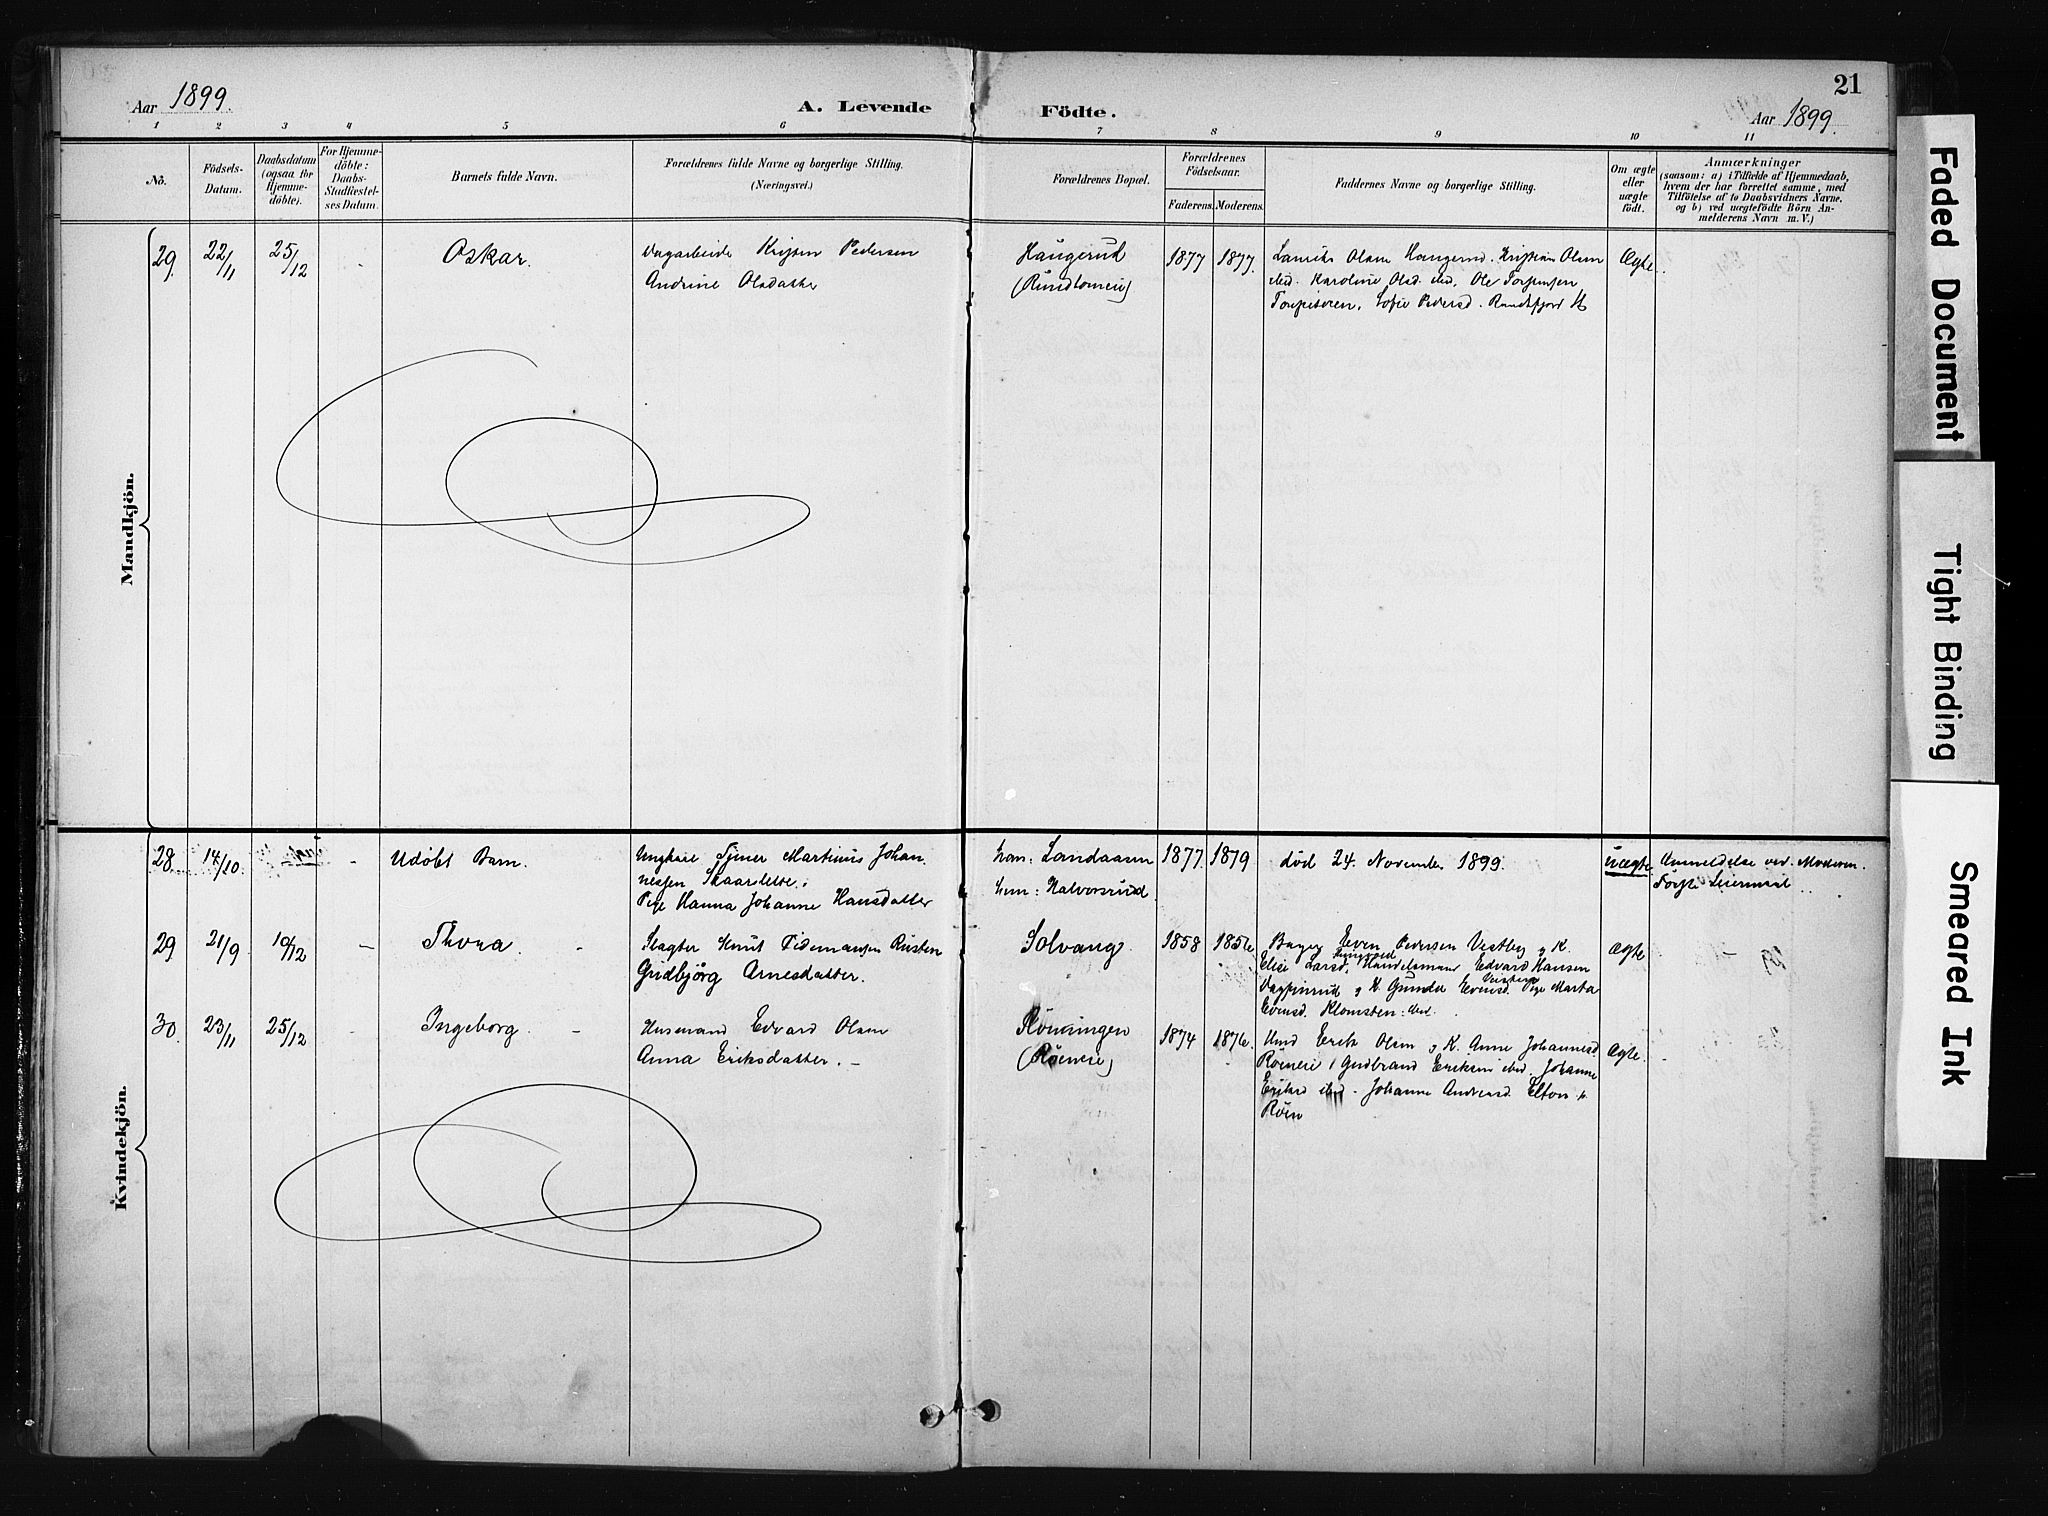 21
Aar 1899.
A. Levende
Födte.
Aar 1899.
1 2 3 4 5 6 7 8 9 10 11
No.
Födsels-
Datum.
Daabsdatum
(ogsaa for
Hjemme-
döbte).
For Hjemme-
döbte:
Daabs-
Stadfæstel-
ses Datum.
Barnets fulde Navn.
Forældrenes fulde Navne og borgerlige Stilling.
(Næringsvei.)
Forældrenes Bopæl.
Forældrenes
Födselsaar.
Faderens. Moderens.
Faddernes Navne og borgerlige Stilling.
Om ægte
eller
uægte
födt.
Anmærkninger
(saasom: a) i Tilfælde af Hjemmedaab,
hvem der har forrettet samme, med
Tilföielse af to Daabsvidners Navne,
og b) ved uægtefödte Börn An-
melderens Navn m. V.)
Mandkjön.
29. 22/11 25/12 Oskar. Dagarbeider Kristen Pedersen
Andrine Olsdatter
Haugerud
1877 1877.
Olsen Haugerud. Kristian Olsen
ibd. Karoline Olsd. ibd, Ole
Sofie Pedersd. Randsfjord St
Ægte
Kvindekjön.
28. 14/10 - Udöbt Barn. Ungkarl Tjener Martinus Johan-
nessen
Pige Hanna Johanne Hansdatter
han: Landaasen
hun: Halvorsrud.
1877. 1879 död 24. November 1899.
uægte
Anmeldelse ved Moderen.
Förste Leiermaal
29 21/9 10/12 - Thora. - Slagter Knut Tidemansen Rusten
Gudbjörg Arnesdatter.
Solvang. 1858 1856
Bager Even Pedersen Vestby og K.
Elise Larsd. Handelsmand Edvard Hansen
og K. Gunda Evensd. Pige Marta
Evensd. Klomsten ibd.
Ægte
30. 23/11 25/12 - Ingeborg. - Husmand Edvard Olsen
Anna Eriksdatter. -
Rönningen
(Röeneie)
1874 1876.
Hmd Erik Olsen og K. Anne Johannesd
Röeneie, Gudbrand Eriksen ibd. Johanne
Eriksd ibd - Johanne Andersd. Elton
Röen
Ægte.
Faded Document
Tight Binding
Smeared Ink